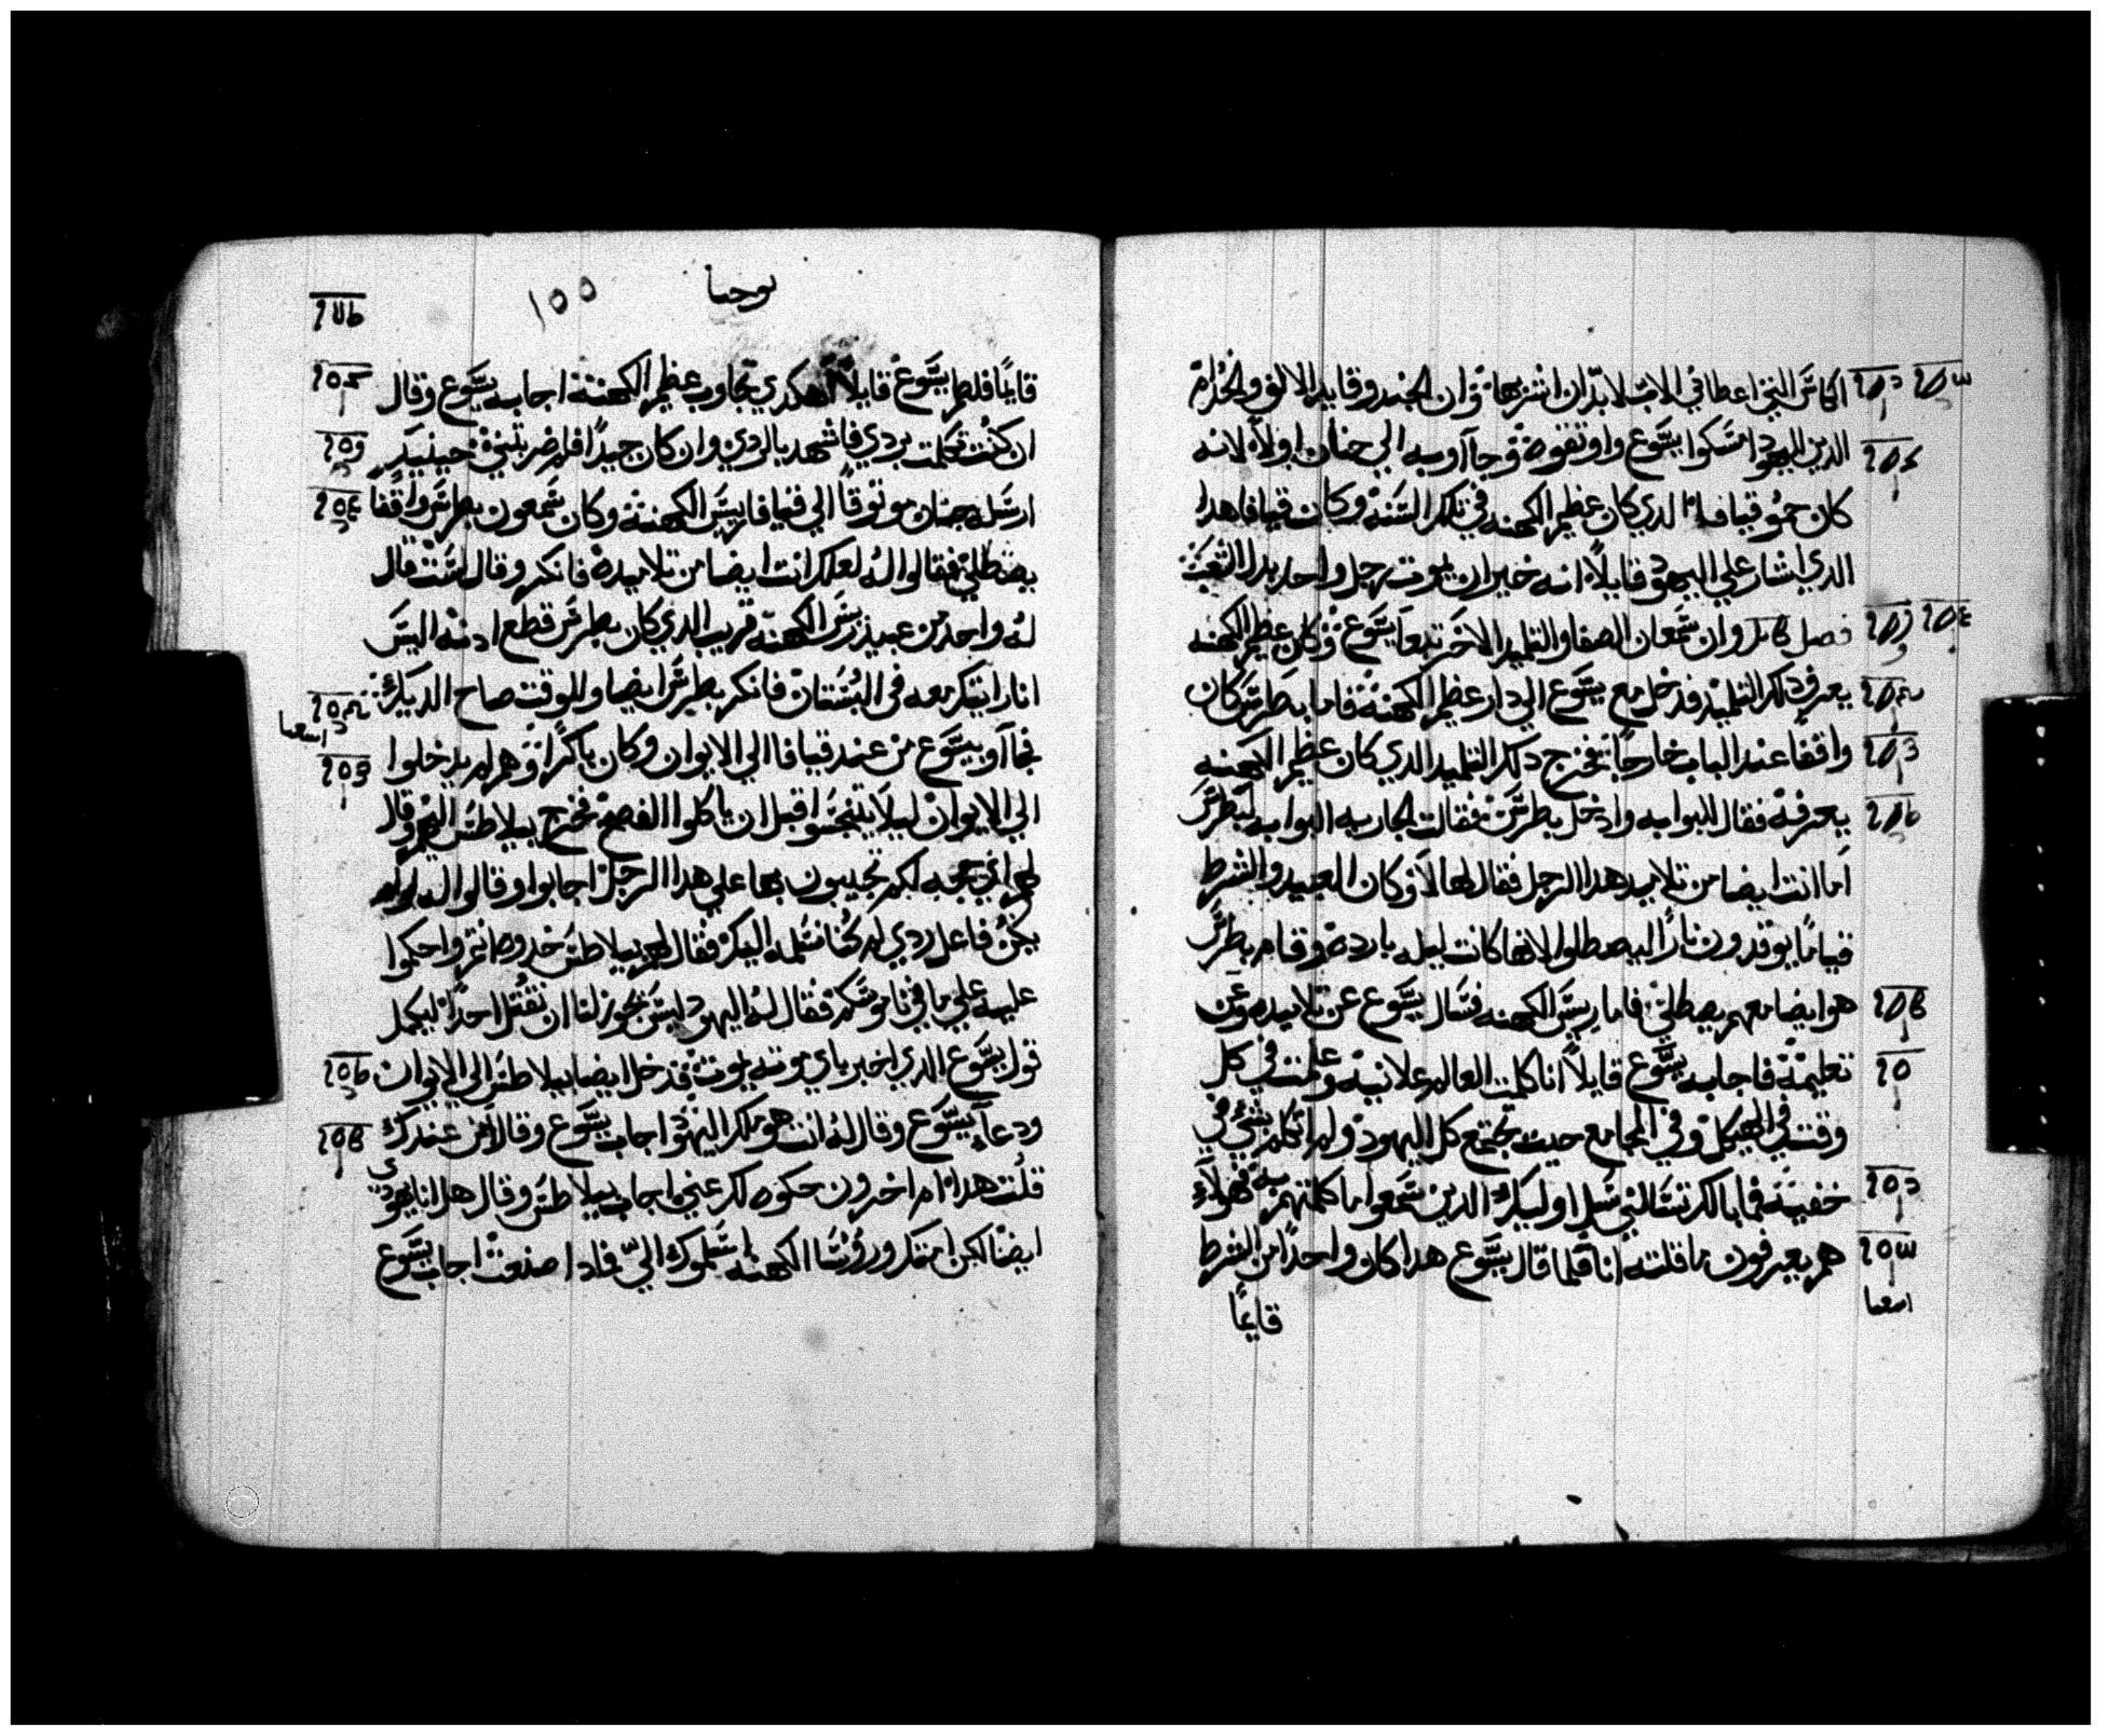 الكاس التي اعطاني الاب لابد ان اشربها وان الجند وقايد الالف والخدام
الدين اليهود امسكوا يسوع واوتقوه وجاآوا به الي حنان اولاً لانه
كان حمو قيافا الدي كان عظيم الكهنه في تلك السنه وكان قيافا هدا
الدي اشار علي اليهود قايلاً انه خير ان يموت رجل واحد بدل الشعب
فصل وان شمعان الصفا والتلميد الاخر تبعا يسوع وكان عظيم الكهنه
يعرف دلك التلميد فدخل مع يسوع الي دار عظيم الكهنه فاما بطرس كان
واقفا عند الباب خارجاً فخرج دلك التلميد الدي كان عظيم الكهنه
يعرفه فقال للبوابه وادخل بطرس فقالت الجاريه البوابه لبطرس
اما انت ايضا من تلاميد هدا الرجل فقال لها لا وكان العبيد والشرط
قياماً يوقدون ناراً ليصطلوا لانها كانت ليله بارده وقام بطرس
هو ايضا معهم يصطلي فاما ريس الكهنه فسال يسوع عن تلاميده وعن
تعليمه فاجابه يسوع قايلاً انا كلمت العالم علانيه وعلمت في كل
وقت في الهيكل وفي المجامع حيث تجتمع كل اليهود ولم اتكلم بشي في
خفيه فما بالك تسالني سل اوليك الدين سمعوا ما كلمتهم به فهولاء
هم يعرفون ما قلته انا فلما قال يسوع هدا كان واحداً من الشرط
اشعيا
قايماً
يوحنا
١٥٥
قايماً فلطم يسوع قايلاً اهكدي تجاوب عظيم الكهنه اجابه يسوع وقال
ان كنت تكلمت بردي فاشهد بالردي وان كان جيداً فلم ضربتني حينيد
ارسله حنان موتوقاً الي قيافا ريس الكهنه وكان شمعون بطرس واقفا
يصطلي فقالوا له لعلك انت ايضا من تلاميده فانكر وقال لست قال
له واحد من عبيد ريس الكهنه قريب الدي كان بطرس قطع ادنه اليس
انا رايتك معه في البستان فانكر بطرس ايضا وللوقت صاح الديك
فجاآوا بيسوع من عند قيافا الي الايوان وكان باكراً وهم لم يدخلوا
اشعيا
الي الايوان ليلا يتنجسوا قبل ان ياكلوا الفصح فخرج بيلاطس اليهم وقال
لهم اي حجه لكم تجيبون بها علي هدا الرجل اجابوا وقالوا له لو لم
يكن فاعل ردي لم كنا نسلمه اليك فقال لهم بيلاطس خدوه انتم واحكموا
عليه علي ما في ناموسكم فقال له اليهود ليس يجوز لنا ان نقتل احداً ليكمل
قول يسوع الدي اخبر باي موته يموت فدخل ايضا بيلاطس الي الايوان
ودعا يسوع وقال له انت هو ملك اليهود اجاب يسوع وقال امن عندك
قلت هدا ام اخرون حكوه لك عني اجاب بيلاطس وقال هل انا يهودي
ايضا لكن امتك ورؤسا الكهنه اسلموك اليّ فمادا صنعت اجاب يسوع